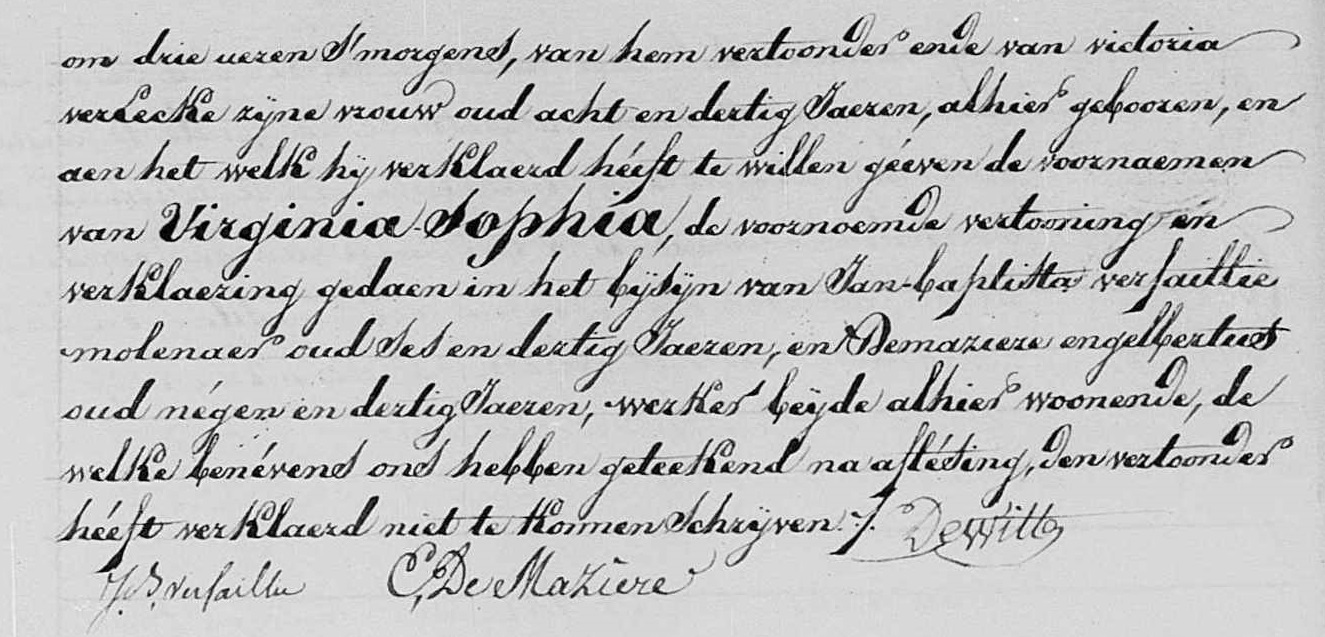 om drie ueren S'morgens, van hem vertoonder ende van victoria
verLecke zijne vrouw oud acht en dertig Jaeren, alhier geboozen, en
aen het welk hij verklaerd hééft te willen géeven de voornaemen
van Virginia Sophia, de voornoemde vertooning en
verklaering gedaen in het bijsijn van Jan-baptista versaillie
molenaer oud Ses en dertig Jaeren, en Demaziere engelbertus
oud négen en dertig Jaeren, werker beijde alhier woonende, de
welke benévens ons hebben geteekend na aflésing, den vertoonder
hééft verklaerd niet te konnen Schrijven ./. DeWitte
J. B. versaillie E, De Maziere